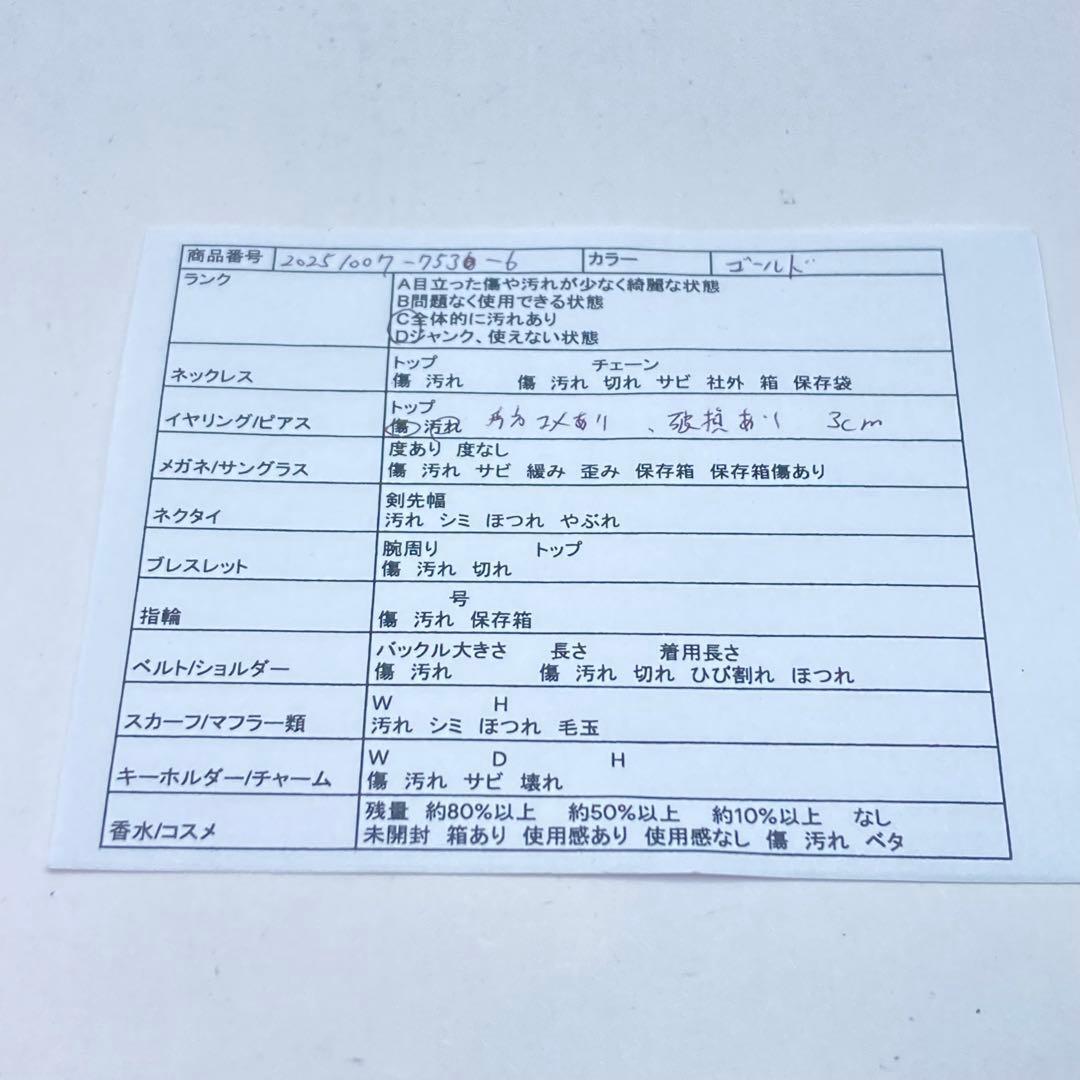 商品番号 20251007-7536-6 カラー ゴールド
ランク
A目立った傷や汚れが少なく綺麗な状態
B問題なく使用できる状態
C全体的に汚れあり
Dジャンク、使えない状態
ネックレス
トップ チェーン
傷 汚れ 傷 汚れ 切れ サビ 社外 箱 保存袋
イヤリング/ピアス
トップ
傷 汚れ あり、破損あり 3cm
メガネ/サングラス
度あり 度なし
傷 汚れ サビ 緩み 歪み 保存箱 保存箱傷あり
ネクタイ
剣先幅
汚れ シミ ほつれ やぶれ
ブレスレット
腕周り トップ
傷 汚れ 切れ
指輪
号
傷 汚れ 保存箱
ベルト/ショルダー
バックル大きさ 長さ 着用長さ
傷 汚れ 傷 汚れ 切れ ひび割れ ほつれ
スカーフ/マフラー類
W H
汚れ シミ ほつれ 毛玉
キーホルダー/チャーム
W D H
傷 汚れ サビ 壊れ
香水/コスメ
残量 約80%以上 約50%以上 約10%以上 なし
未開封 箱あり 使用感あり 使用感なし 傷 汚れ ベタ